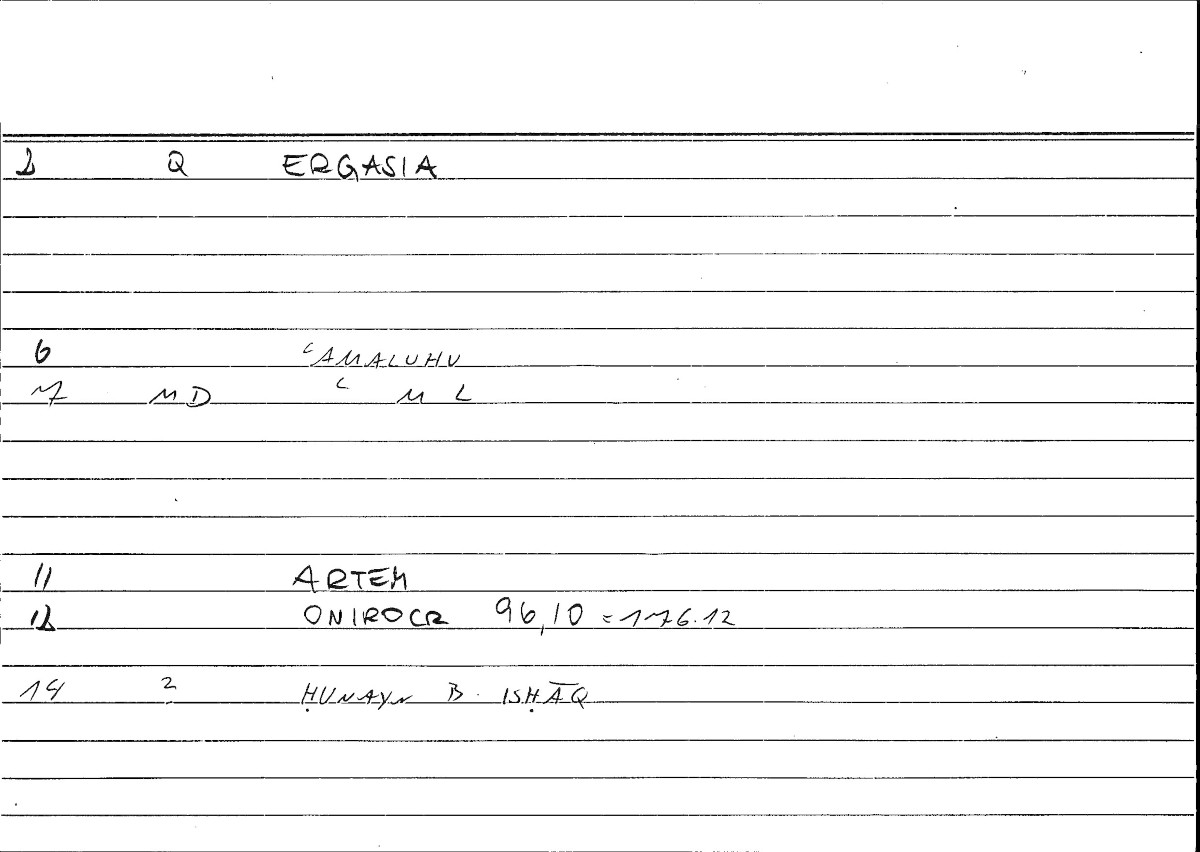 2 Q ERGASIA
6 ʿAMALUHU
7 MD ʿ M L
11 ARTEM
12 ONIROCR 96,10 = 176.12
14 2 ḤUNAYN B. ISḤĀQ